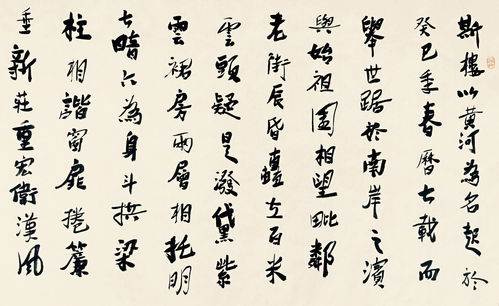 斯樓以黃河為名起於
癸巳季春曆七載而
舉世踞於南岸之濱
與始祖園相望毗鄰
老街辰昏矗立百米
雲頭疑是潑黛紫
雲裙房兩層相托明
七暗六為身斗拱梁
柱相諧窗扉捲簾
垂新莊重宏衛漢風